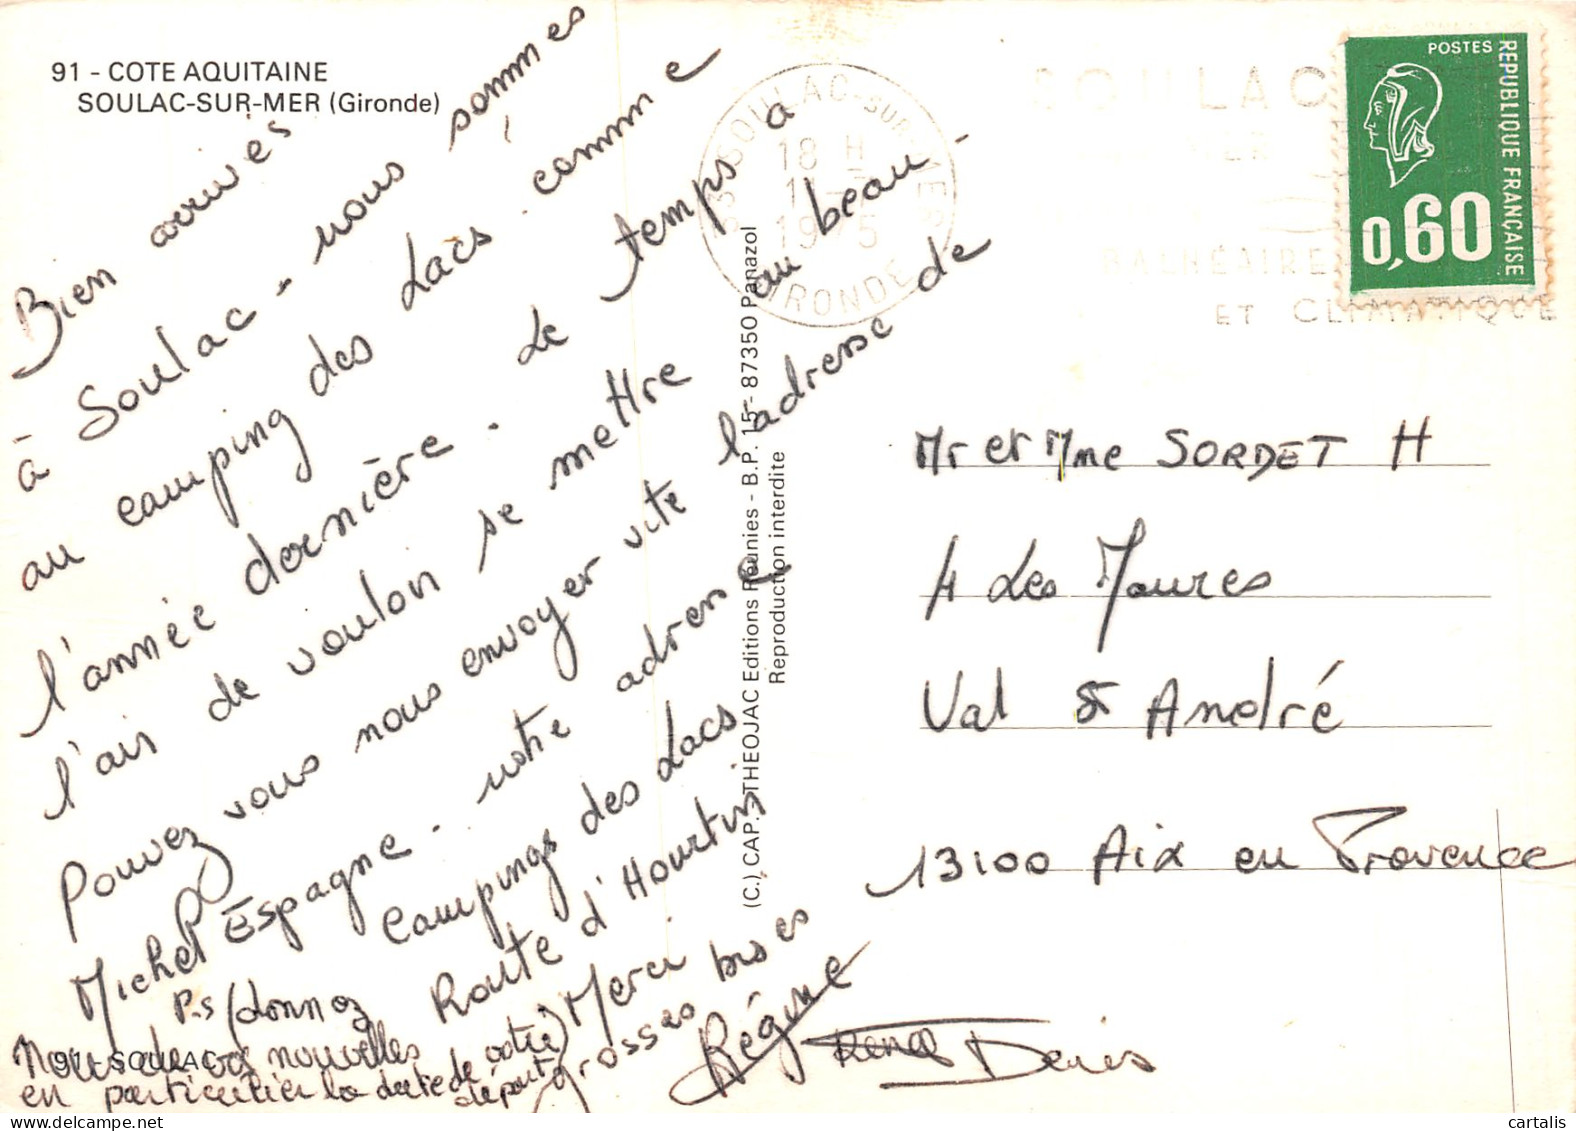 91 - COTE AQUITAINE
SOULAC-SUR-MER (Gironde)
Bien arrivés
à Soulac - nous sommes
au camping des Lacs comme
l'année dernière. Le temps a
l'air de vouloir se mettre au beau -
Pouvez vous nous envoyer vite l'adresse de
Michel Espagne - notre adresse
Campings des Lacs
Route d'Hourtin
Merci
grosses bises
P.s (donnez
nous de vos nouvelles
en particulier la date de votre)
départ
Régine
René Denis
(C.) CAP-THEOJAC Editions Réunies - B.P. 15 - 87350 Panazol
Reproduction interdite
33 SOULAC-SUR-MER
18 H
1975
GIRONDE
SOULAC
MER
BALNÉAIRE
ET CLIMATIQUE
POSTES
REPUBLIQUE FRANÇAISE
0,60
Mr et Mme SORDET H
4 Les Maures
Val St André
13100 Aix en Provence
cartalis